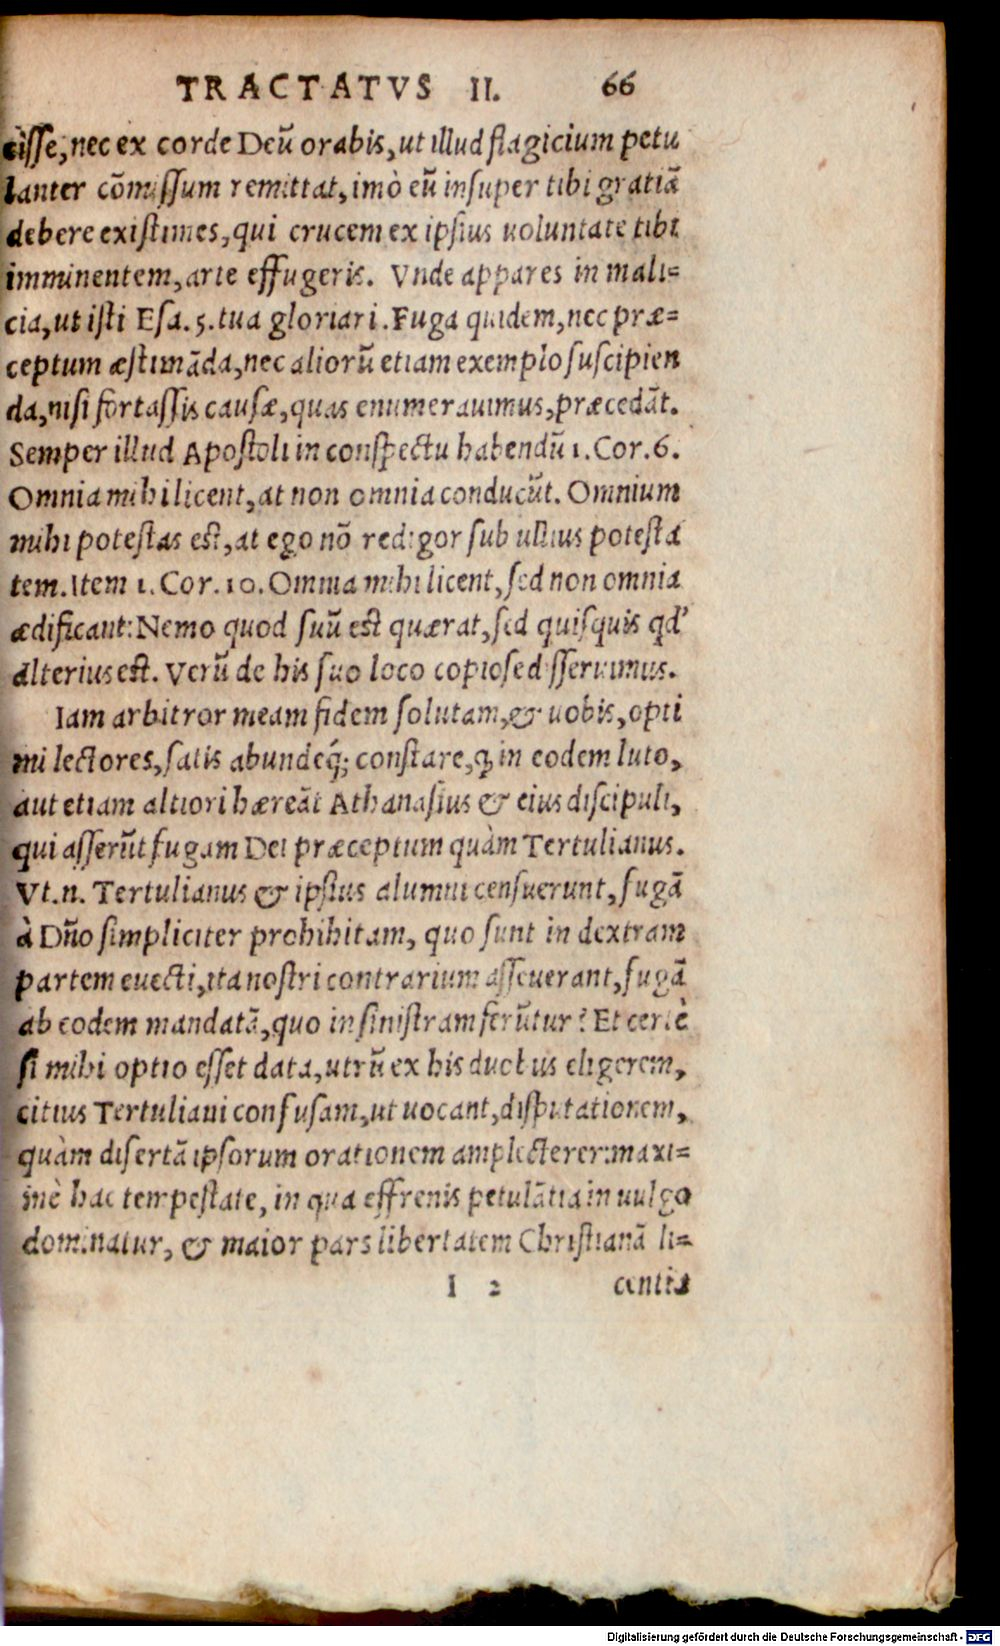 TRACTATVS II. 66
cisse, nec ex corde Deũ orabis, ut illud flagicium petu
lanter cõmissum remittat, imò eũ insuper tibi gratiã
debere existimes, qui crucem ex ipsius uoluntate tibi
imminentem, arte effugeris. Vnde appares in mali=
cia, ut isti Esa. 5. tua gloriari. Fuga quidem, nec præ=
ceptum æstimãda, nec aliorũ etiam exemplo suscipien
da, nisi fortassis causæ, quas enumerauimus, præcedãt.
Semper illud Apostoli in conspectu habendũ 1. Cor. 6.
Omnia mihi licent, at non omnia conducũt. Omnium
mihi potestas est, at ego nõ redigor sub ullius potesta
tem. Item 1. Cor. 10. Omnia mihi licent, sed non omnia
ædificant: Nemo quod suũ est quærat, sed quisquis qd’
alterius est. Verũ de his suo loco copiose disserimus.
Iam arbitror meam fidem solutam, & uobis, opti
mi lectores, satis abundeq́; constare, ꝙ in eodem luto,
aut etiam altiori hæreãt Athanasius & eius discipuli,
qui asserũt fugam Dei præceptum quàm Tertulianus.
Vt.n. Tertulianus & ipsius alumni censuerunt, fugã
à Dño simpliciter prohibitam, quo sunt in dextram
partem euecti, ita nostri contrarium asseuerant, fugã
ab eodem mandatã, quo in sinistram ferũtur? Et certè
si mihi optio esset data, utrũ ex his duobus eligerem,
citius Tertuliani confusam, ut uocant, disputationem,
quàm disertã ipsorum orationem amplecterer: maxi=
mè hac tempestate, in qua effrenis petulãtia in uulgo
dominatur, & maior pars libertatem Christianã li=
I 2 centia
Digitalisierung gefördert durch die Deutsche Forschungsgemeinschaft - DFG